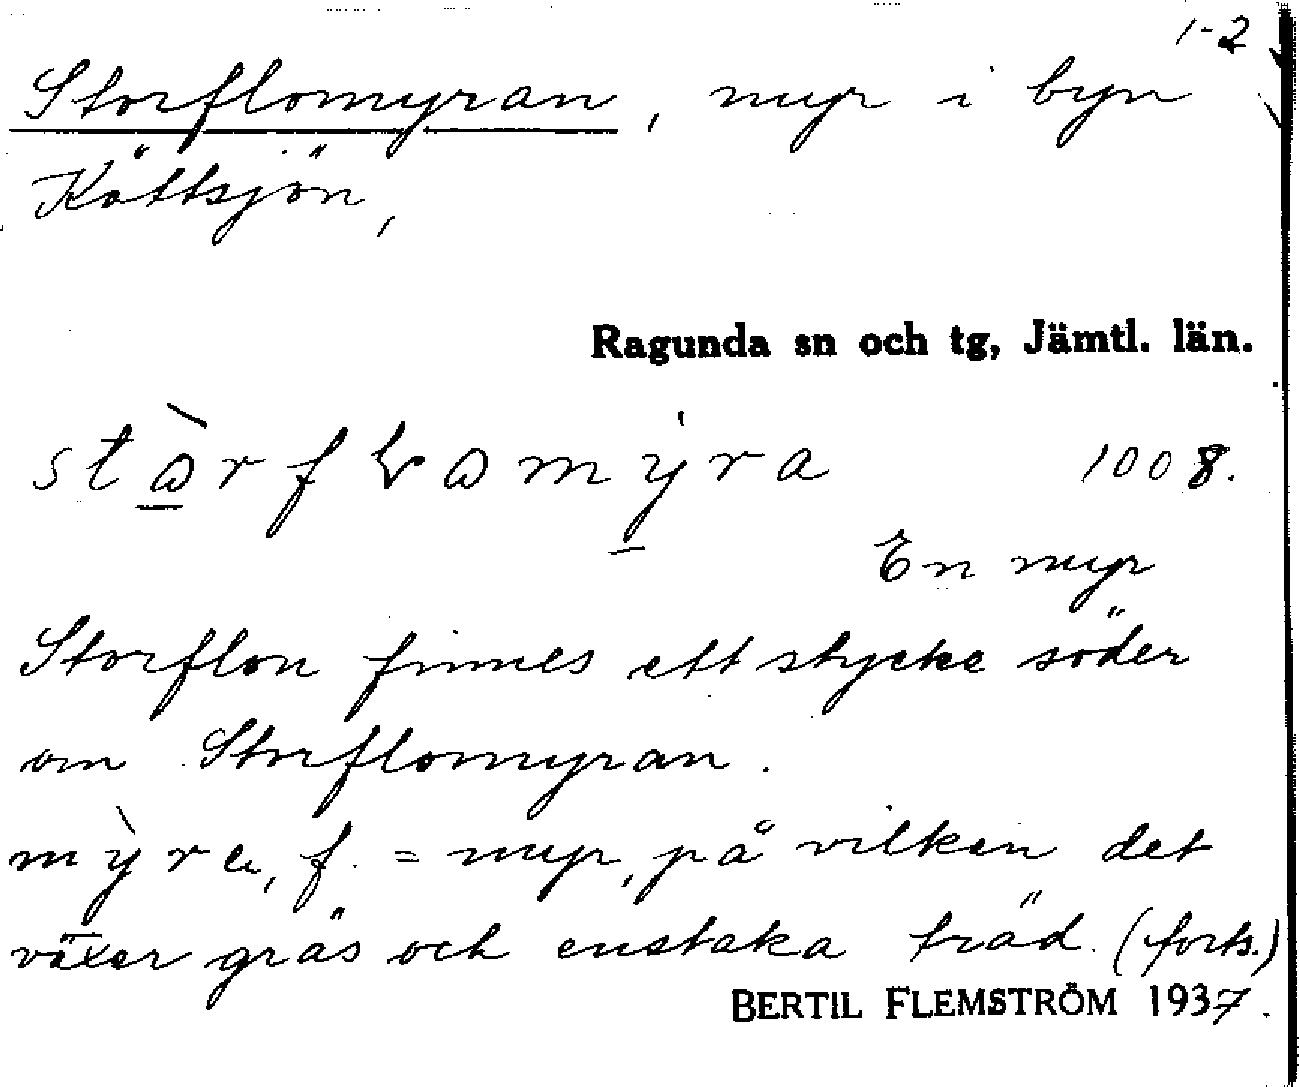 1-2
Storflomyran, myr i byn
Köttsjön,
Ragunda sn och tg, Jämtl. län.
1008.
En myr
Storflon finnes ett stycke söder
om Storflomyran.
f. = myr, på vilken det
växer gräs och enstaka träd. (forts.)
BERTIL FLEMSTRÖM 1937.